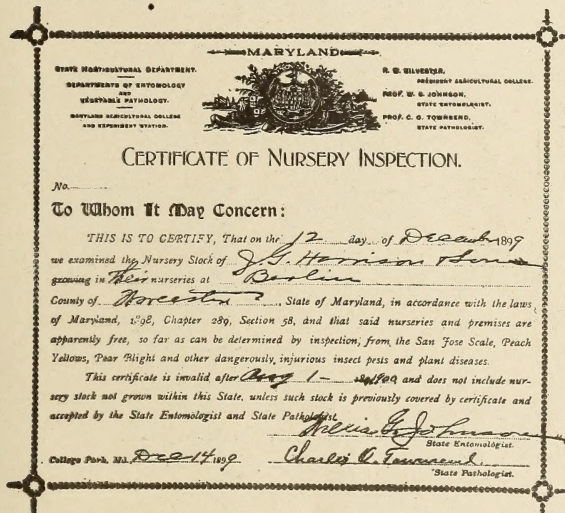 MARYLAND
STATE HORTICULTURAL DEPARTMENT.
DEPARTMENTS OF ENTOMOLOGY
AND
VEGETABLE PATHOLOGY.
MARYLAND AGRICULTURAL COLLEGE
AND EXPERIMENT STATION.
R. W. SILVESTER,
PRESIDENT AGRICULTURAL COLLEGE.
PROF. W. G. JOHNSON,
STATE ENTOMOLOGIST.
PROF. C. O. TOWNSEND,
STATE PATHOLOGIST.
CERTIFICATE OF NURSERY INSPECTION.
No.
To Whom It May Concern:
THIS IS TO CERTIFY, That on the 12 day of December 1899
we examined the Nursery Stock of J. G. Harrison & Sons
growing in their nurseries at Berlin
County of Worcester, State of Maryland, in accordance with the laws
of Maryland, 1898, Chapter 289, Section 58, and that said nurseries and premises are
apparently free, so far as can be determined by inspection, from the San Jose Scale, Peach
Yellows, Pear Blight and other dangerously injurious insect pests and plant diseases.
This certificate is invalid after Aug 1 - 1900 and does not include nur-
sery stock not grown within this State, unless such stock is previously covered by certificate and
accepted by the State Entomologist and State Pathologist.
Willis G. Johnson
State Entomologist.
College Park, Md. Dec 14 1899 Charles O. Townsend
State Pathologist.